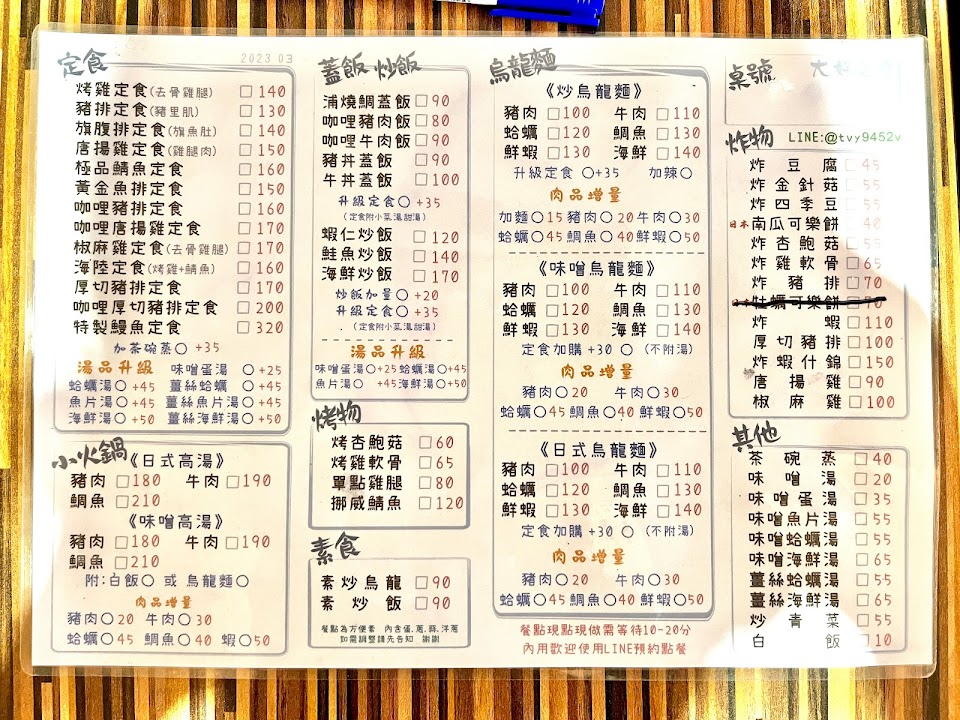 定食
2023 03
烤雞定食(去骨雞腿) □140
豬排定食(豬里肌) □130
旗腹排定食(旗魚肚) □140
唐揚雞定食(雞腿肉) □150
極品鯖魚定食 □160
黃金魚排定食 □150
咖哩豬排定食 □160
咖哩唐揚雞定食 □170
椒麻雞定食(去骨雞腿) □170
海陸定食(烤雞+鯖魚) □160
厚切豬排定食 □170
咖哩厚切豬排定食 □200
特製鰻魚定食 □320
加茶碗蒸○ +35
湯品升級 味噌蛋湯 ○+25
蛤蠣湯○+45 薑絲蛤蠣 ○+45
魚片湯○+45 薑絲魚片湯○+45
海鮮湯○+50 薑絲海鮮湯○+50
小火鍋
《日式高湯》
豬肉 □180 牛肉 □190
鯛魚 □210
《味噌高湯》
豬肉 □180 牛肉 □190
鯛魚 □210
附:白飯○ 或 烏龍麵○
肉品增量
豬肉○20 牛肉○30
蛤蠣○45 鯛魚○40 蝦○50
蓋飯 炒飯
浦燒鯛蓋飯 □90
咖哩豬肉飯 □80
咖哩牛肉飯 □90
豬丼蓋飯 □90
牛丼蓋飯 □100
升級定食○+35
(定食附小菜.湯.甜湯)
蝦仁炒飯 □120
鮭魚炒飯 □140
海鮮炒飯 □170
炒飯加量○ +20
升級定食○ +35
(定食附小菜.湯.甜湯)
湯品升級
味噌蛋湯○+25 蛤蠣湯○+45
魚片湯○ +45 海鮮湯○+50
烤物
烤杏鮑菇 □60
烤雞軟骨 □65
單點雞腿 □80
挪威鯖魚 □120
素食
素炒烏龍 □90
素炒飯 □90
餐點為方便素 內含蛋.蔥.蒜.洋蔥
如需調整請先告知 謝謝
烏龍麵
《炒烏龍麵》
豬肉 □100 牛肉 □110
蛤蠣 □120 鯛魚 □130
鮮蝦 □130 海鮮 □140
升級定食 ○+35 加辣○
肉品增量
加麵○15 豬肉○20 牛肉○30
蛤蠣○45 鯛魚○40 鮮蝦○50
《味噌烏龍麵》
豬肉 □100 牛肉 □110
蛤蠣 □120 鯛魚 □130
鮮蝦 □130 海鮮 □140
定食加購+30 ○ (不附湯)
肉品增量
豬肉○20 牛肉○30
蛤蠣○45 鯛魚○40 鮮蝦○50
《日式烏龍麵》
豬肉 □100 牛肉 □110
蛤蠣 □120 鯛魚 □130
鮮蝦 □130 海鮮 □140
定食加購+30 ○ (不附湯)
肉品增量
豬肉○20 牛肉○30
蛤蠣○45 鯛魚○40 鮮蝦○50
餐點現點現做需等待10-20分
內用歡迎使用LINE預約點餐
桌號
炸物 LINE:@tvy9452v
炸豆腐 □45
炸金針菇 □55
炸四季豆 □55
日本南瓜可樂餅 □40
炸杏鮑菇 □55
炸雞軟骨 □65
炸豬排 □70
牡蠣可樂餅 □70
炸蝦 □110
厚切豬排 □100
炸蝦什錦 □150
唐揚雞 □90
椒麻雞 □100
其他
茶碗蒸 □40
味噌湯 □20
味噌蛋湯 □35
味噌魚片湯 □55
味噌蛤蠣湯 □55
味噌海鮮湯 □65
薑絲蛤蠣湯 □55
薑絲海鮮湯 □65
炒青菜 □55
白飯 □10